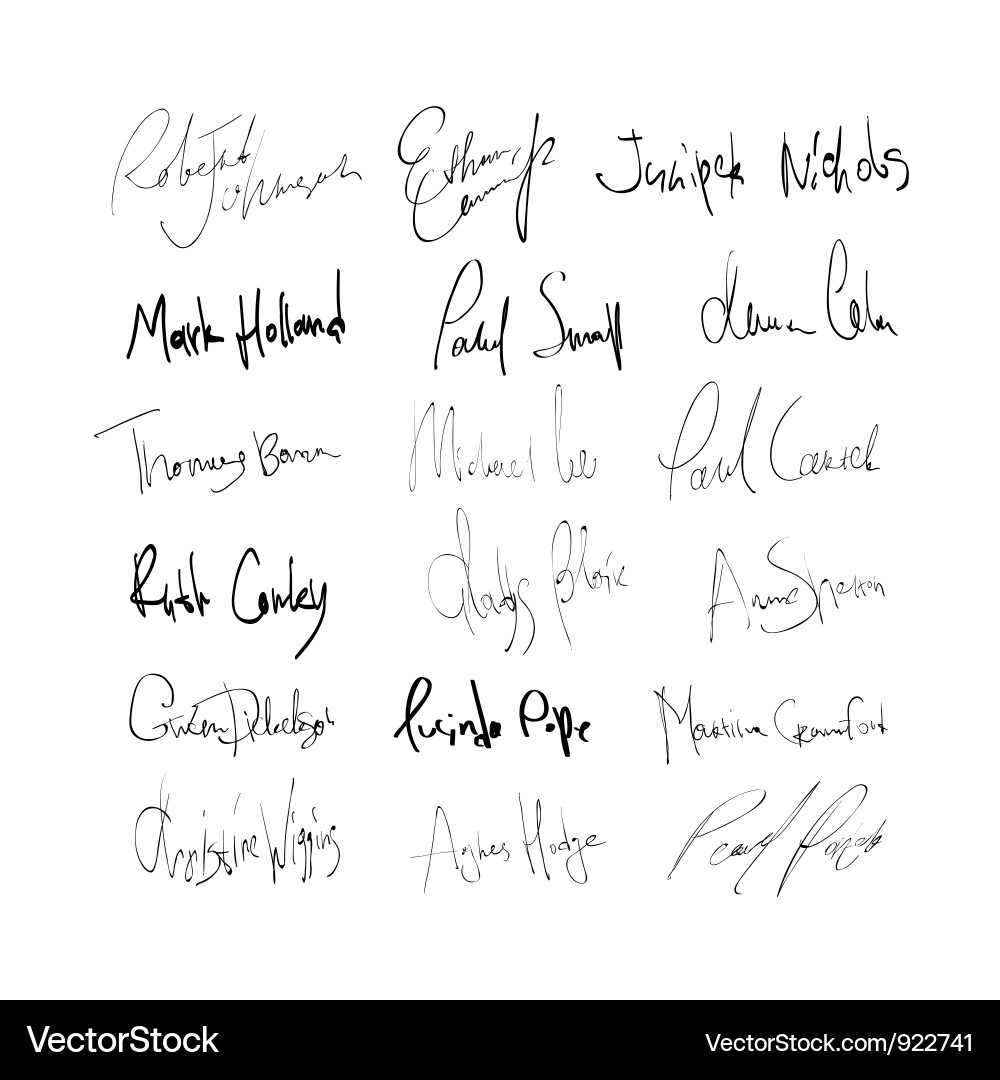 Robert Johnson
Ethan
Juniper Nichols
Mark Holland
Paul Small
Thomas
Michael Lee
Paul
Ruth Conley
Gladys
Anne Shelton
Gwen Dickerson
Lucinda Pope
Martina Crawford
Christine Wiggins
Agnes Hodge
Pearl
VectorStock®
VectorStock.com/922741